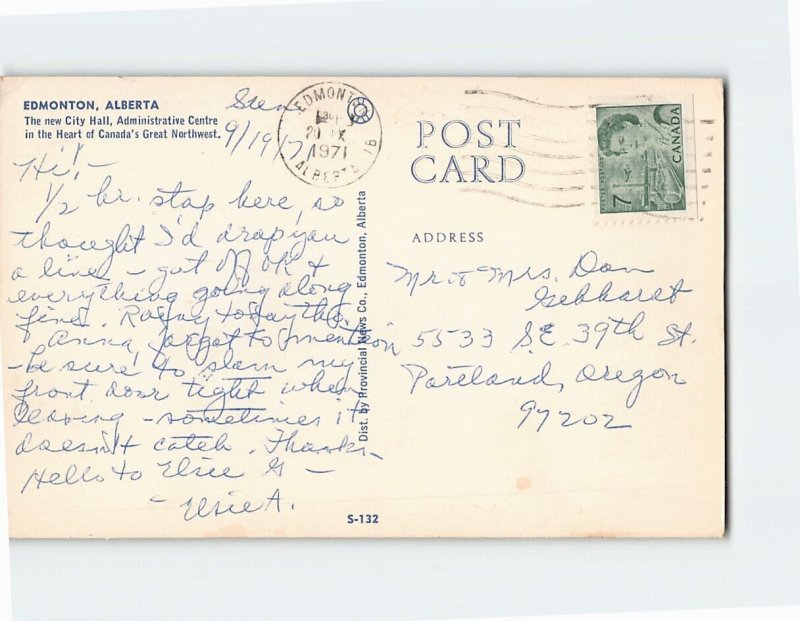 EDMONTON, ALBERTA
The new City Hall, Administrative Centre
in the Heart of Canada's Great Northwest.
Sun
9/19/71
EDMONTON
20 IX
1971
ALBERTA
POST
CARD
7
CANADA
ADDRESS
Hi! -
1/2 hr. stop here, so
thought I'd drop you
a line - got off OK &
everything going along
fine. Rainy today tho.
Anna, forgot to mention
- be sure to slam my
front door tight when
leaving - sometimes it
doesn't catch. Thanks -
Hello to Elsie G -
- Elsie A.
Dist. by Provincial News Co., Edmonton, Alberta
Mr. & Mrs. Dan
Gebhardt
5533 S.E. 39th St.
Portland, Oregon
97202
S-132